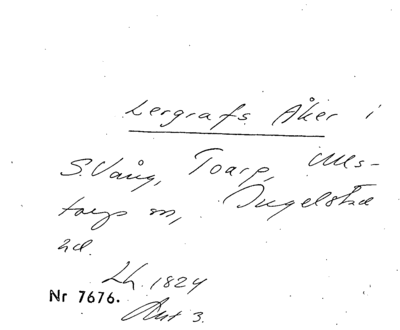 Lergrafs Åker i
S. Vång, Toarp, Ulls-
torps sn, Ingelstad
hd.
Lh. 1824
Nr 7676.
Akt 3.